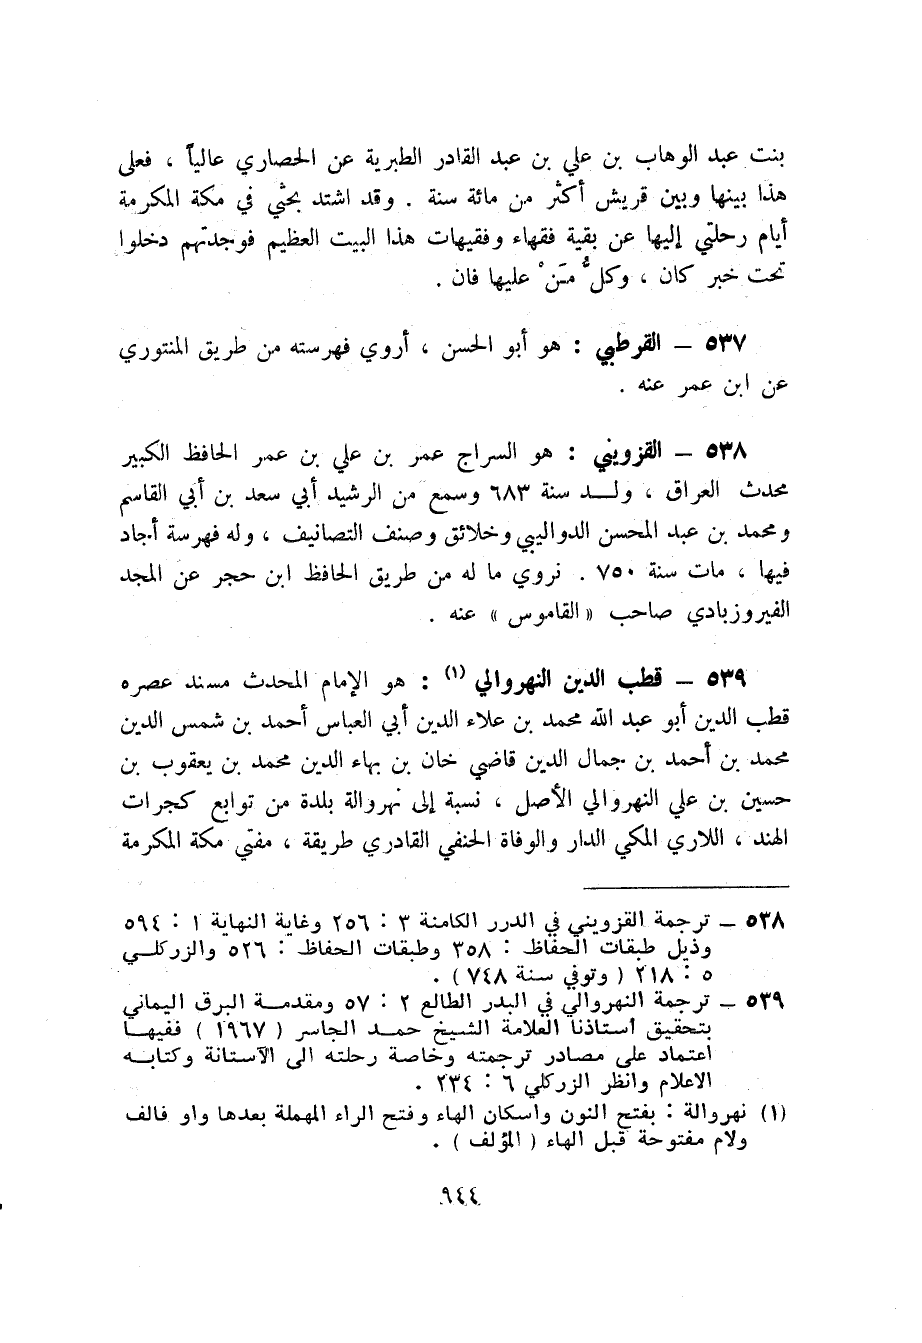 بنت عبد الوهاب بن علي بن عبد القادر الطبرية عن الحصاري عالياً ، فعلى
هذا بينها وبين قريش أكثر من مائة سنة . وقد اشتد بحثي في مكة المكرمة
أيام رحلتي إليها عن بقية فقهاء وفقيهات هذا البيت العظيم فوجدتهم دخلوا
تحت خبر كان ، وكلُّ مَنْ عليها فان .
٥٣٧ – القرطبي : هو أبو الحسن ، أروي فهرسته من طريق المنتوري
عن ابن عمر عنه .
٥٣٨ – القزويني : هو السراج عمر بن علي بن عمر الحافظ الكبير
محدث العراق ، ولـد سنة ٦٨٣ وسمع من الرشيد أبي سعد بن أبي القاسم
ومحمد بن عبد المحسن الدواليبي وخلائق وصنف التصانيف ، وله فهرسة أجاد
فيها ، مات سنة ٧٥٠ . نروي ما له من طريق الحافظ ابن حجر عن المجد
الفيروزبادي صاحب « القاموس » عنه .
٥٣٩ – قطب الدين النهروالي (١) : هو الإمام المحدث مسند عصره
قطب الدين أبو عبد الله محمد بن علاء الدين أبي العباس أحمد بن شمس الدين
محمد بن أحمد بن جمال الدين قاضي خان بن بهاء الدين محمد بن يعقوب بن
حسين بن علي النهروالي الأصل ، نسبة إلى نهروالة بلدة من توابع كجرات
الهند ، اللاري المكي الدار والوفاة الحنفي القادري طريقة ، مفتي مكة المكرمة
٥٣٨ – ترجمة القزويني في الدرر الكامنة ٣ : ٢٥٦ وغاية النهاية ١ : ٥٩٤
وذيل طبقات الحفاظ : ٣٥٨ وطبقات الحفاظ : ٥٢٦ والزركلـي
٥ : ٢١٨ ( وتوفي سنة ٧٤٨ ) .
٥٣٩ – ترجمة النهروالي في البدر الطالع ٢ : ٥٧ ومقدمـة البرق اليماني
بتحقيق أستاذنا العلامة الشيخ حمـد الجاسر ( ١٩٦٧ ) ففيهـا
اعتماد على مصادر ترجمته وخاصة رحلته الى الآستانة وكتابـه
الاعلام وانظر الزركلي ٦ : ٢٣٤ .
(١) نهروالة : بفتح النون واسكان الهاء وفتح الراء المهملة بعدها واو فالف
ولام مفتوحة قبل الهاء ( المؤلف ) .
٩٤٤